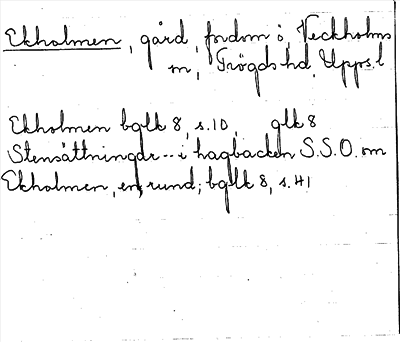 Ekholmen, gård, fordom ö, Veckholms
m, Trögds hd, Upps. l
Ekholmen bglk 8, s. 10, glk 8
Stensättningar -- i hagbacken S.S.O. om
Ekholmen, en, rund; bglk 8, s. 41